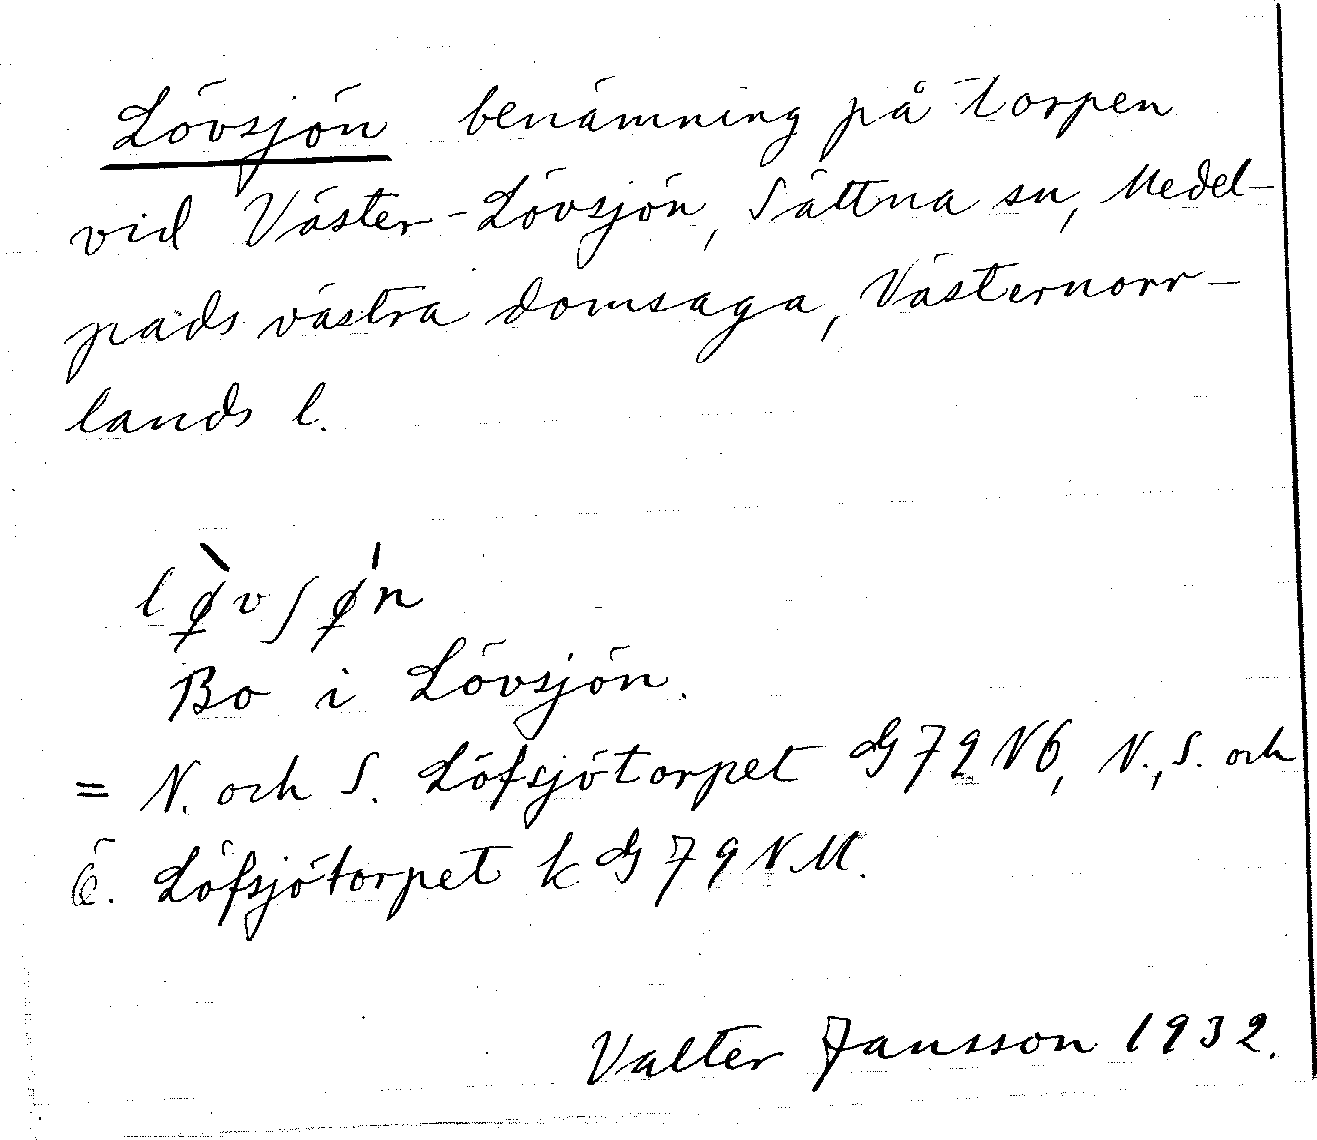 Lövsjön benämning på torpen
vid Väster-Lövsjön, Sättna sn, Medel-
pads västra domsaga, Västernorr-
lands l.
lø̀vʃǿn
Bo i Lövsjön.
= N. och S. Löfsjötorpet G 79 N6, N., S. och
Ö. Löfsjötorpet k G 79 N.M.
Valter Jansson 1932.